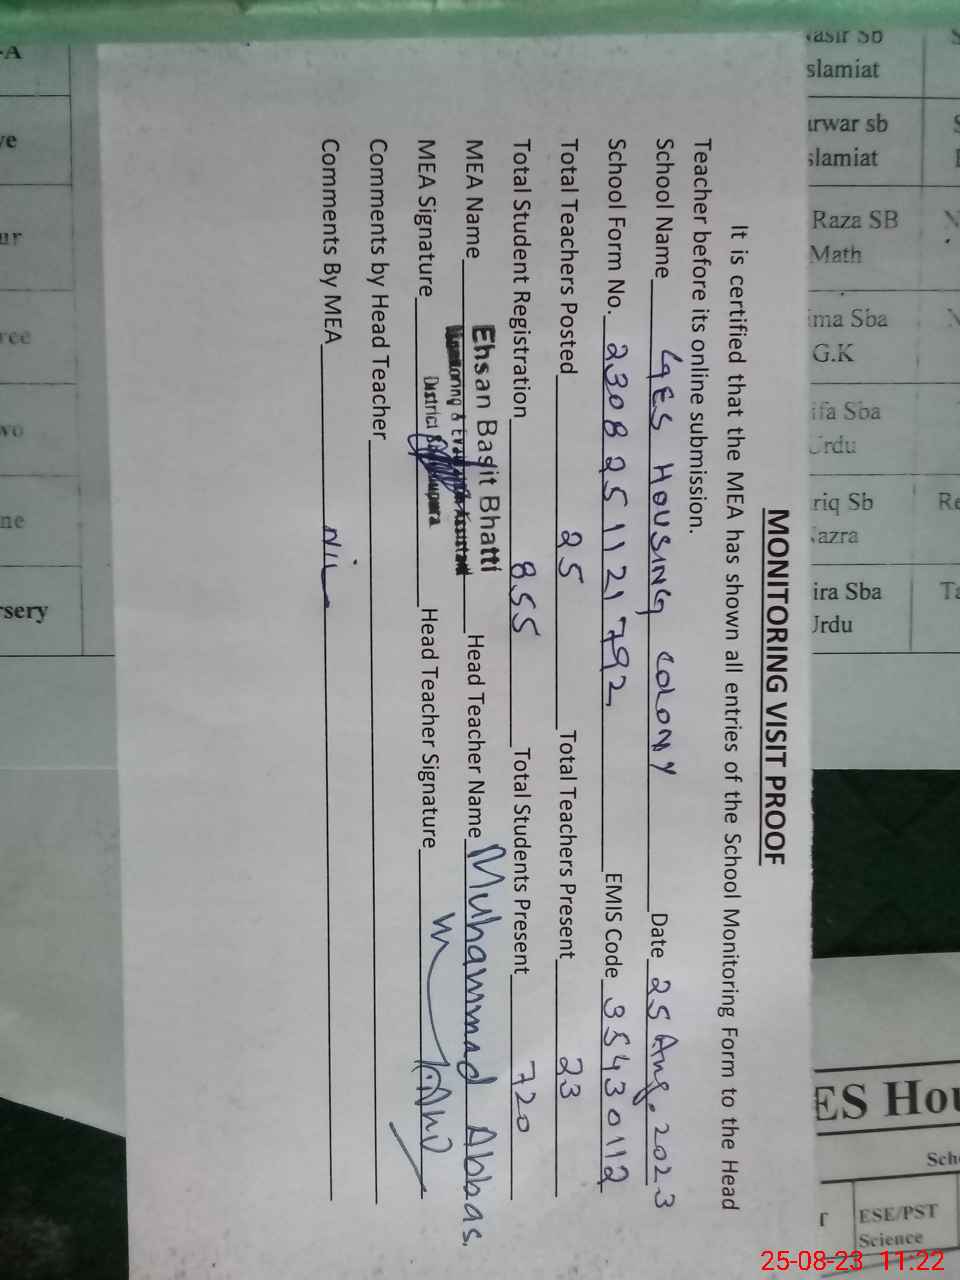 MONITORING VISIT PROOF
It is certified that the MEA has shown all entries of the School Monitoring Form to the Head
Teacher before its online submission.
School Name GES HOUSING COLONY Date 25 Aug. 2023
School Form No. 2308251121792 EMIS Code 35430112
Total Teachers Posted 25 Total Teachers Present 23
Total Student Registration 855 Total Students Present 720
MEA Name Ehsan Basit Bhatti Head Teacher Name Muhammad Abbas.
Monitoring & Evaluation Assistant
MEA Signature District Sheikhupura Head Teacher Signature
Comments by Head Teacher
Comments By MEA Nil
slamiat
sb
slamiat
Raza SB
Math
Sba
G.K
Sba
Sb
Sba
ES
ESE/PST
Science
25-08-23 11:22